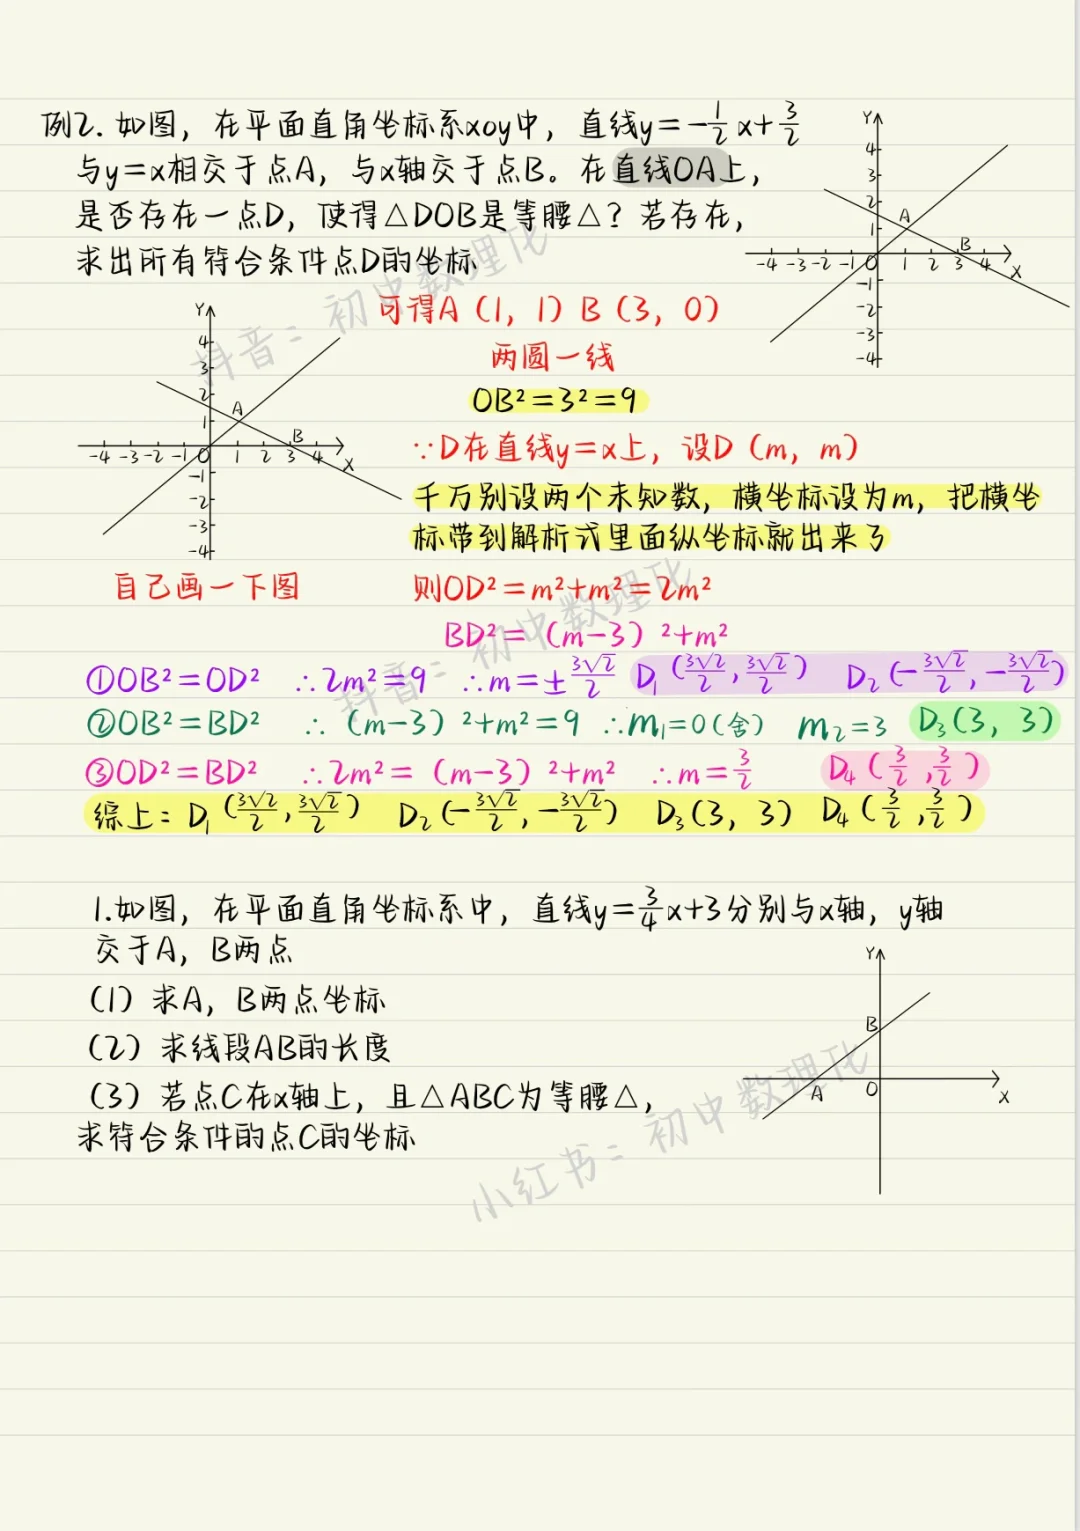 例2. 如图，在平面直角坐标系xoy中，直线y=-1/2 x+3/2
与y=x相交于点A，与x轴交于点B。在直线OA上，
是否存在一点D，使得△DOB是等腰△？若存在，
求出所有符合条件点D的坐标
Y
4
3
2
1
A
B
-4 -3 -2 -1 O 1 2 3 4 X
-1
-2
-3
-4
可得A（1，1）B（3，0）
两圆一线
OB²=3²=9
∵D在直线y=x上，设D（m，m）
千万别设两个未知数，横坐标设为m，把横坐
标带到解析式里面纵坐标就出来了
Y
4
3
2
1
A
B
-4 -3 -2 -1 O 1 2 3 4 X
-1
-2
-3
-4
自己画一下图
则OD²=m²+m²=2m²
BD²=（m-3）²+m²
①OB²=OD² ∴2m²=9 ∴m=±3√2/2 D₁（3√2/2，3√2/2） D₂（-3√2/2，-3√2/2）
②OB²=BD² ∴（m-3）²+m²=9 ∴m₁=0（舍） m₂=3 D₃（3，3）
③OD²=BD² ∴2m²=（m-3）²+m² ∴m=3/2 D₄（3/2，3/2）
综上：D₁（3√2/2，3√2/2） D₂（-3√2/2，-3√2/2） D₃（3，3） D₄（3/2，3/2）
1.如图，在平面直角坐标系中，直线y=3/4x+3分别与x轴，y轴
交于A，B两点
（1）求A，B两点坐标
（2）求线段AB的长度
（3）若点C在x轴上，且△ABC为等腰△，
求符合条件的点C的坐标
Y
B
A
O
X
抖音：初中数理化
抖音：初中数理化
小红书：初中数理化